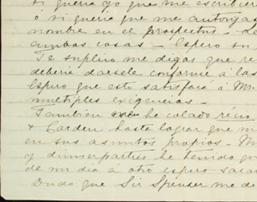 si queria yo que me escribiera
o si queria que me autorizas
nombre en el prospectus - de
ambas cosas - Espero su
Te suplico me digas que re
deberia darsele conforme á las
Espero que esto satisfaca á Mr
multiples exigencias.
Tambien he colado
& Carden hasta lograr que
en sus asuntos propios - M
y dinner parties he tenido
de mi dia á otro espero sacar
Dudo que Sir Spenser me de